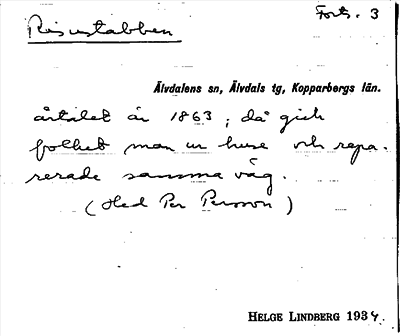 Forts. 3
Risustabben
Älvdalens sn, Älvdals tg, Kopparbergs län.
årtalet är 1863 ; då gick
folket man ur huse och repa-
rerade samma väg.
(Hed Per Persson)
HELGE LINDBERG 1934.